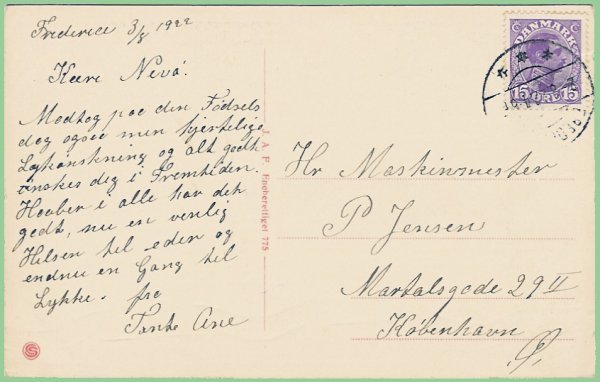 Fredericia 3/8 1922
Kære Nevø.
Modtog paa din Fødsels
dag ogsaa min hjertelige
Lykønskning og alt godt
ønskes dig i Fremtiden.
Haaber i alle har det
godt, nu en venlig
Hilsen til eder og
endnu en Gang til
Lykke. fra
Tante Ane
J. A. F. Eneberettiget 775
DANMARK
15 ØRE 15
Hr Maskinmester
P Jensen
Martalsgade 29 II
København
Ø.